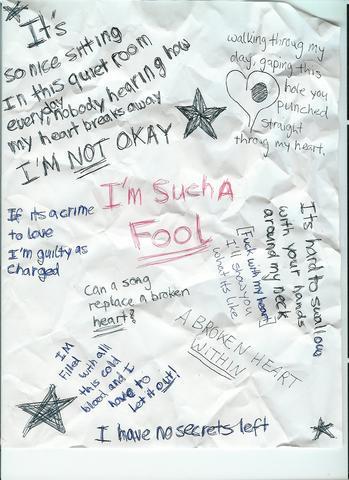 It's
so nice sitting
in this quiet room
everyday nobody hearing how
my heart breaks away
I'M NOT OKAY
walking throug my
day, gaping this
hole you
punched
straight
throug my heart.
I'm Such A
FOOL
If its a crime
to love
I'm guilty as
charged
It's hard to swallow
with your hands
around my neck
Fuck with my heart
I'll show you
what its like
Can a song
replace a broken
heart?
A BROKEN HEART
WITHIN
IM
Filled
with all
this cold
blood and I
have to
let it out!
I have no secrets left